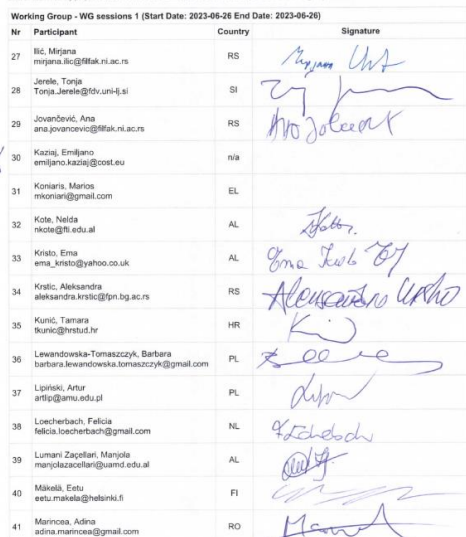 Working Group - WG sessions 1 (Start Date: 2023-06-26 End Date: 2023-06-26)
Nr Participant Country Signature
27 Ilić, Mirjana RS
mirjana.ilic@filfak.ni.ac.rs
28 Jerele, Tonja SI
Tonja.Jerele@fdv.uni-lj.si
29 Jovančević, Ana RS
ana.jovancevic@filfak.ni.ac.rs
30 Kaziaj, Emiljano n/a
emiljano.kaziaj@cost.eu
31 Koniaris, Marios EL
mkoniari@gmail.com
32 Kote, Nelda AL
nkote@fti.edu.al
33 Kristo, Ema AL Ema
ema_kristo@yahoo.co.uk
34 Krstic, Aleksandra RS
aleksandra.krstic@fpn.bg.ac.rs
35 Kunić, Tamara HR
tkunic@hrstud.hr
36 Lewandowska-Tomaszczyk, Barbara PL
barbara.lewandowska.tomaszczyk@gmail.com
37 Lipiński, Artur PL
artlip@amu.edu.pl
38 Loecherbach, Felicia NL
felicia.loecherbach@gmail.com
39 Lumani Zaçellari, Manjola AL
manjolazacellari@uamd.edu.al
40 Mäkelä, Eetu FI
eetu.makela@helsinki.fi
41 Marincea, Adina RO
adina.marincea@gmail.com